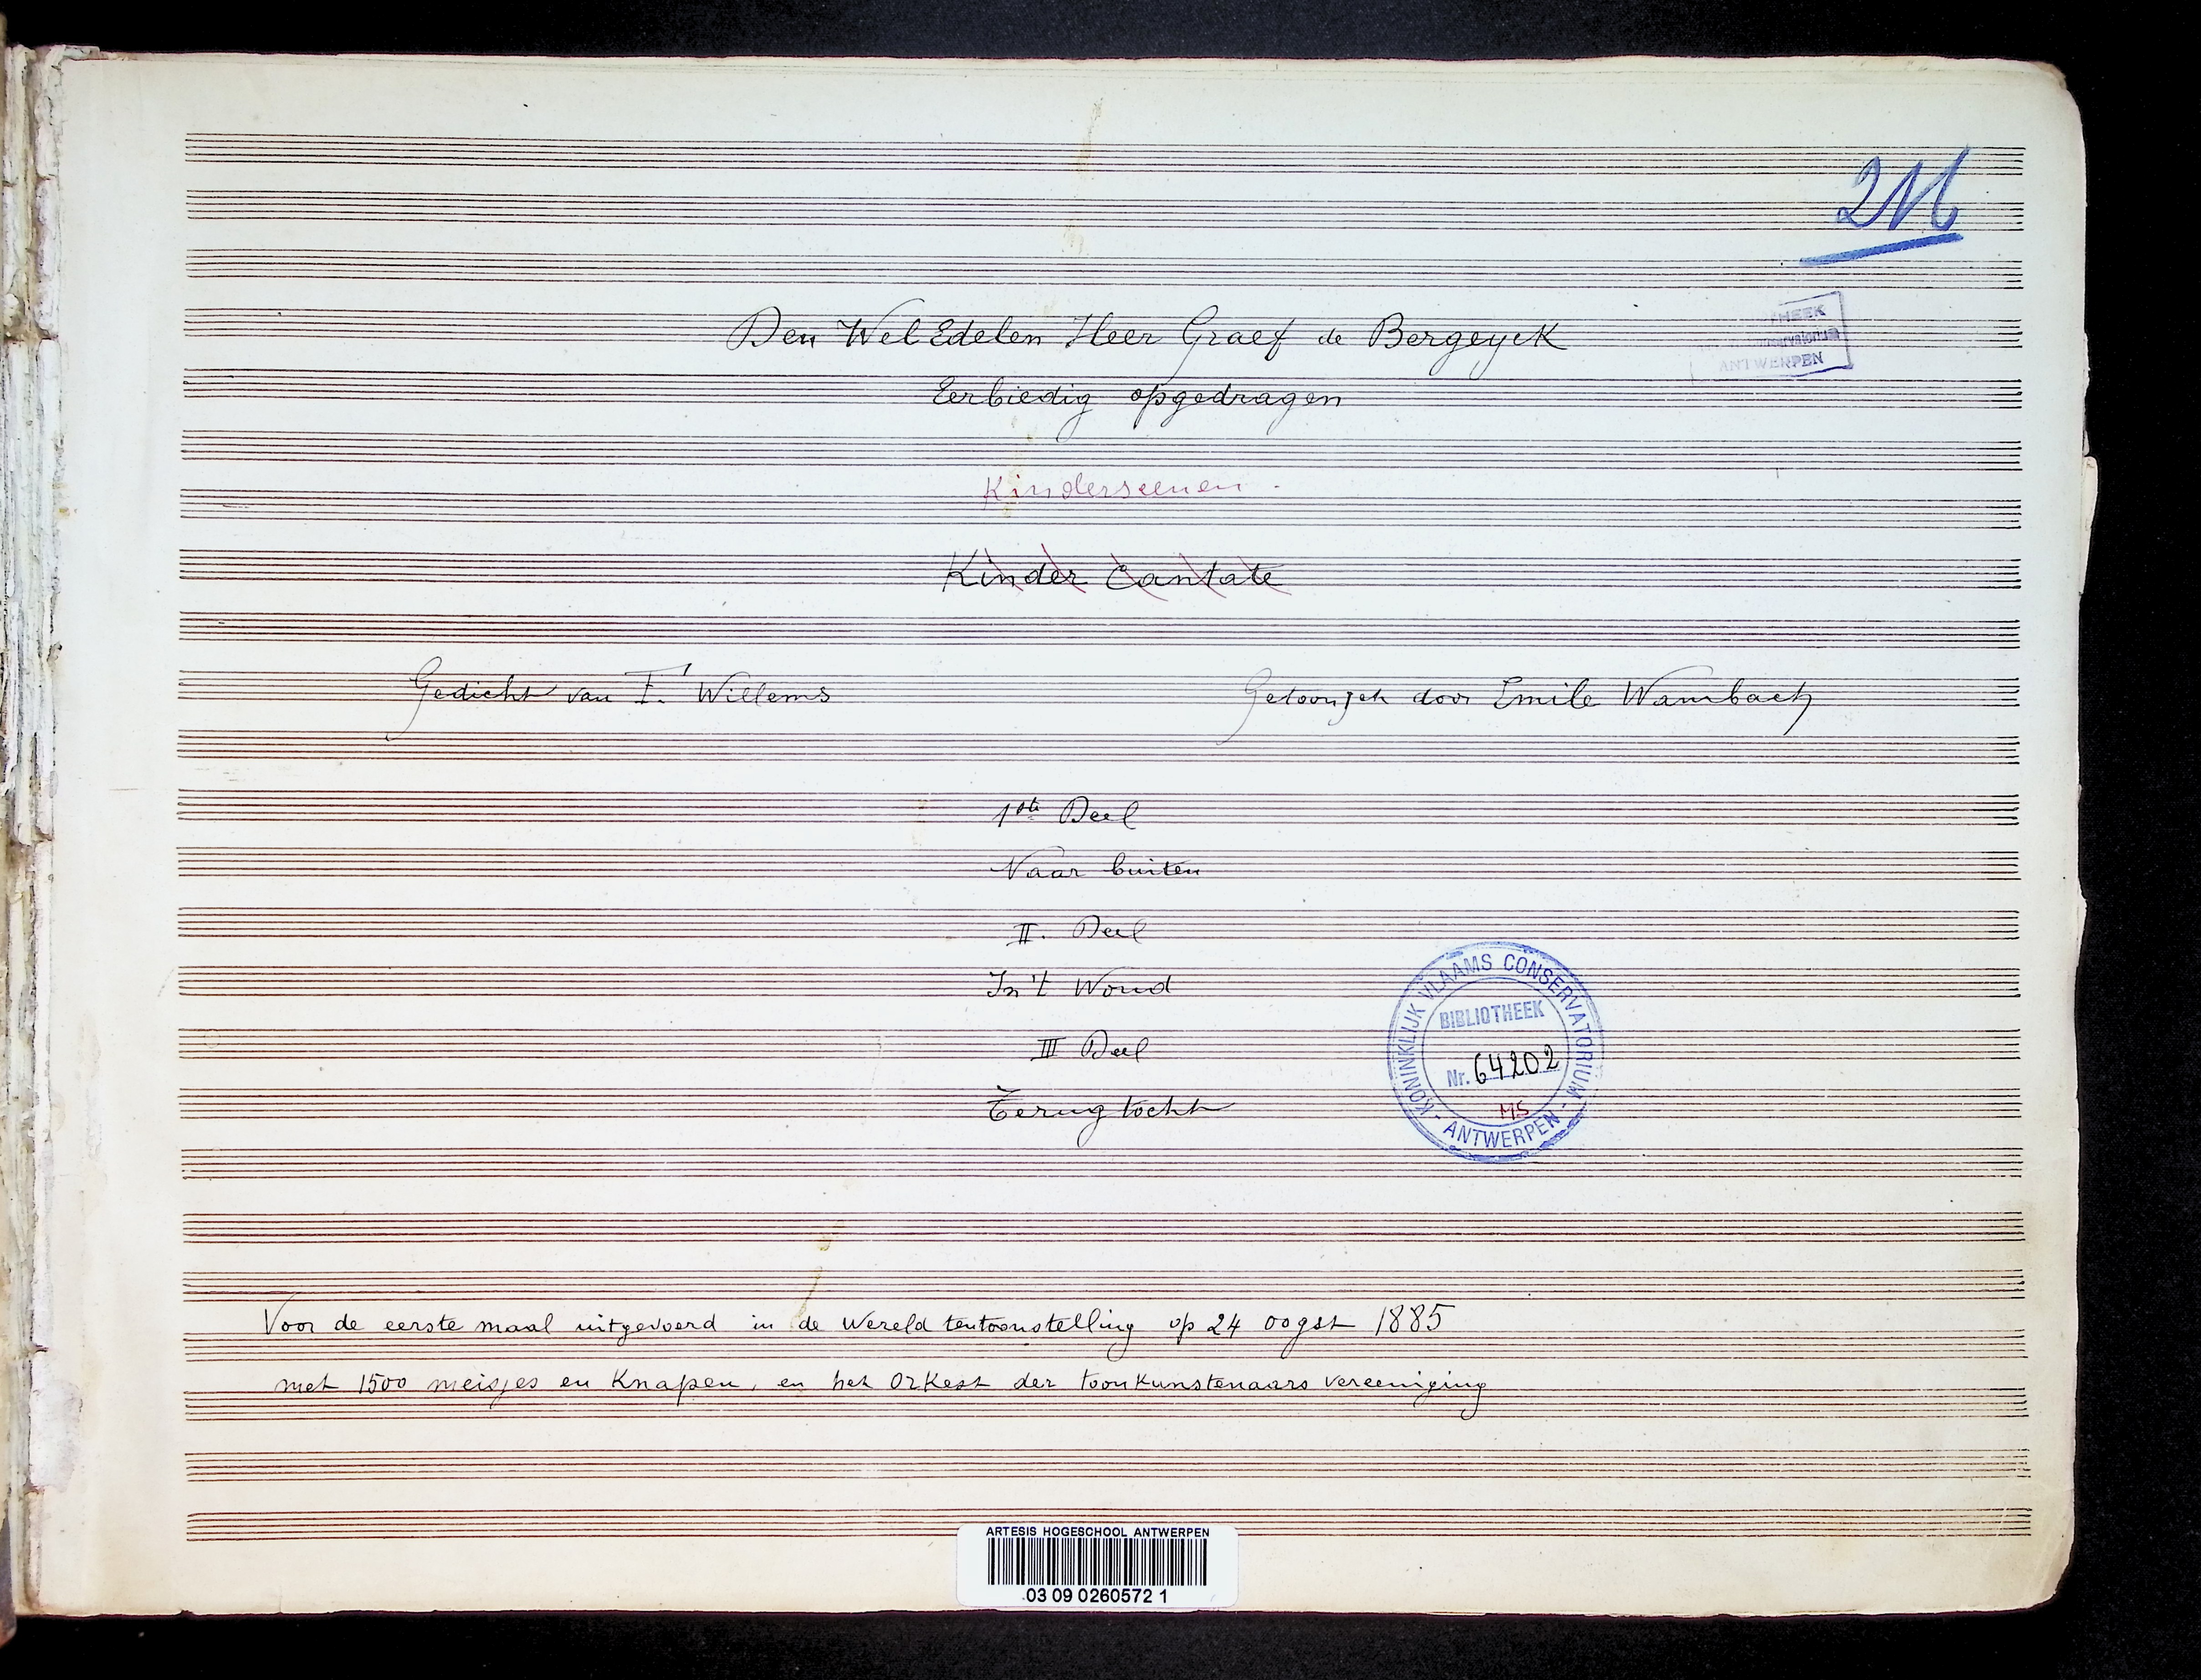 216
Den Wel Edelen Heer Graef de Bergeyck
HEEK
ANTWERPEN
Eerbiedig opgedragen
Kinderscenen.
Kinder Cantate
Gedicht van F. Willems
Getoonzet door Emile Wambach
1ste Deel
Naar buiten
II. Deel
In 't Woud
III Deel
Terugtocht
KONINKLIJK VLAAMS CONSERVATORIUM - ANTWERPEN -
BIBLIOTHEEK
Nr. 64202
MS
Voor de eerste maal uitgevoerd in de Wereld tentoonstelling op 24 oogst 1885
met 1500 meisjes en Knapen, en het Orkest der toonkunstenaars vereeniging
ARTESIS HOGESCHOOL ANTWERPEN
03 09 0260572 1